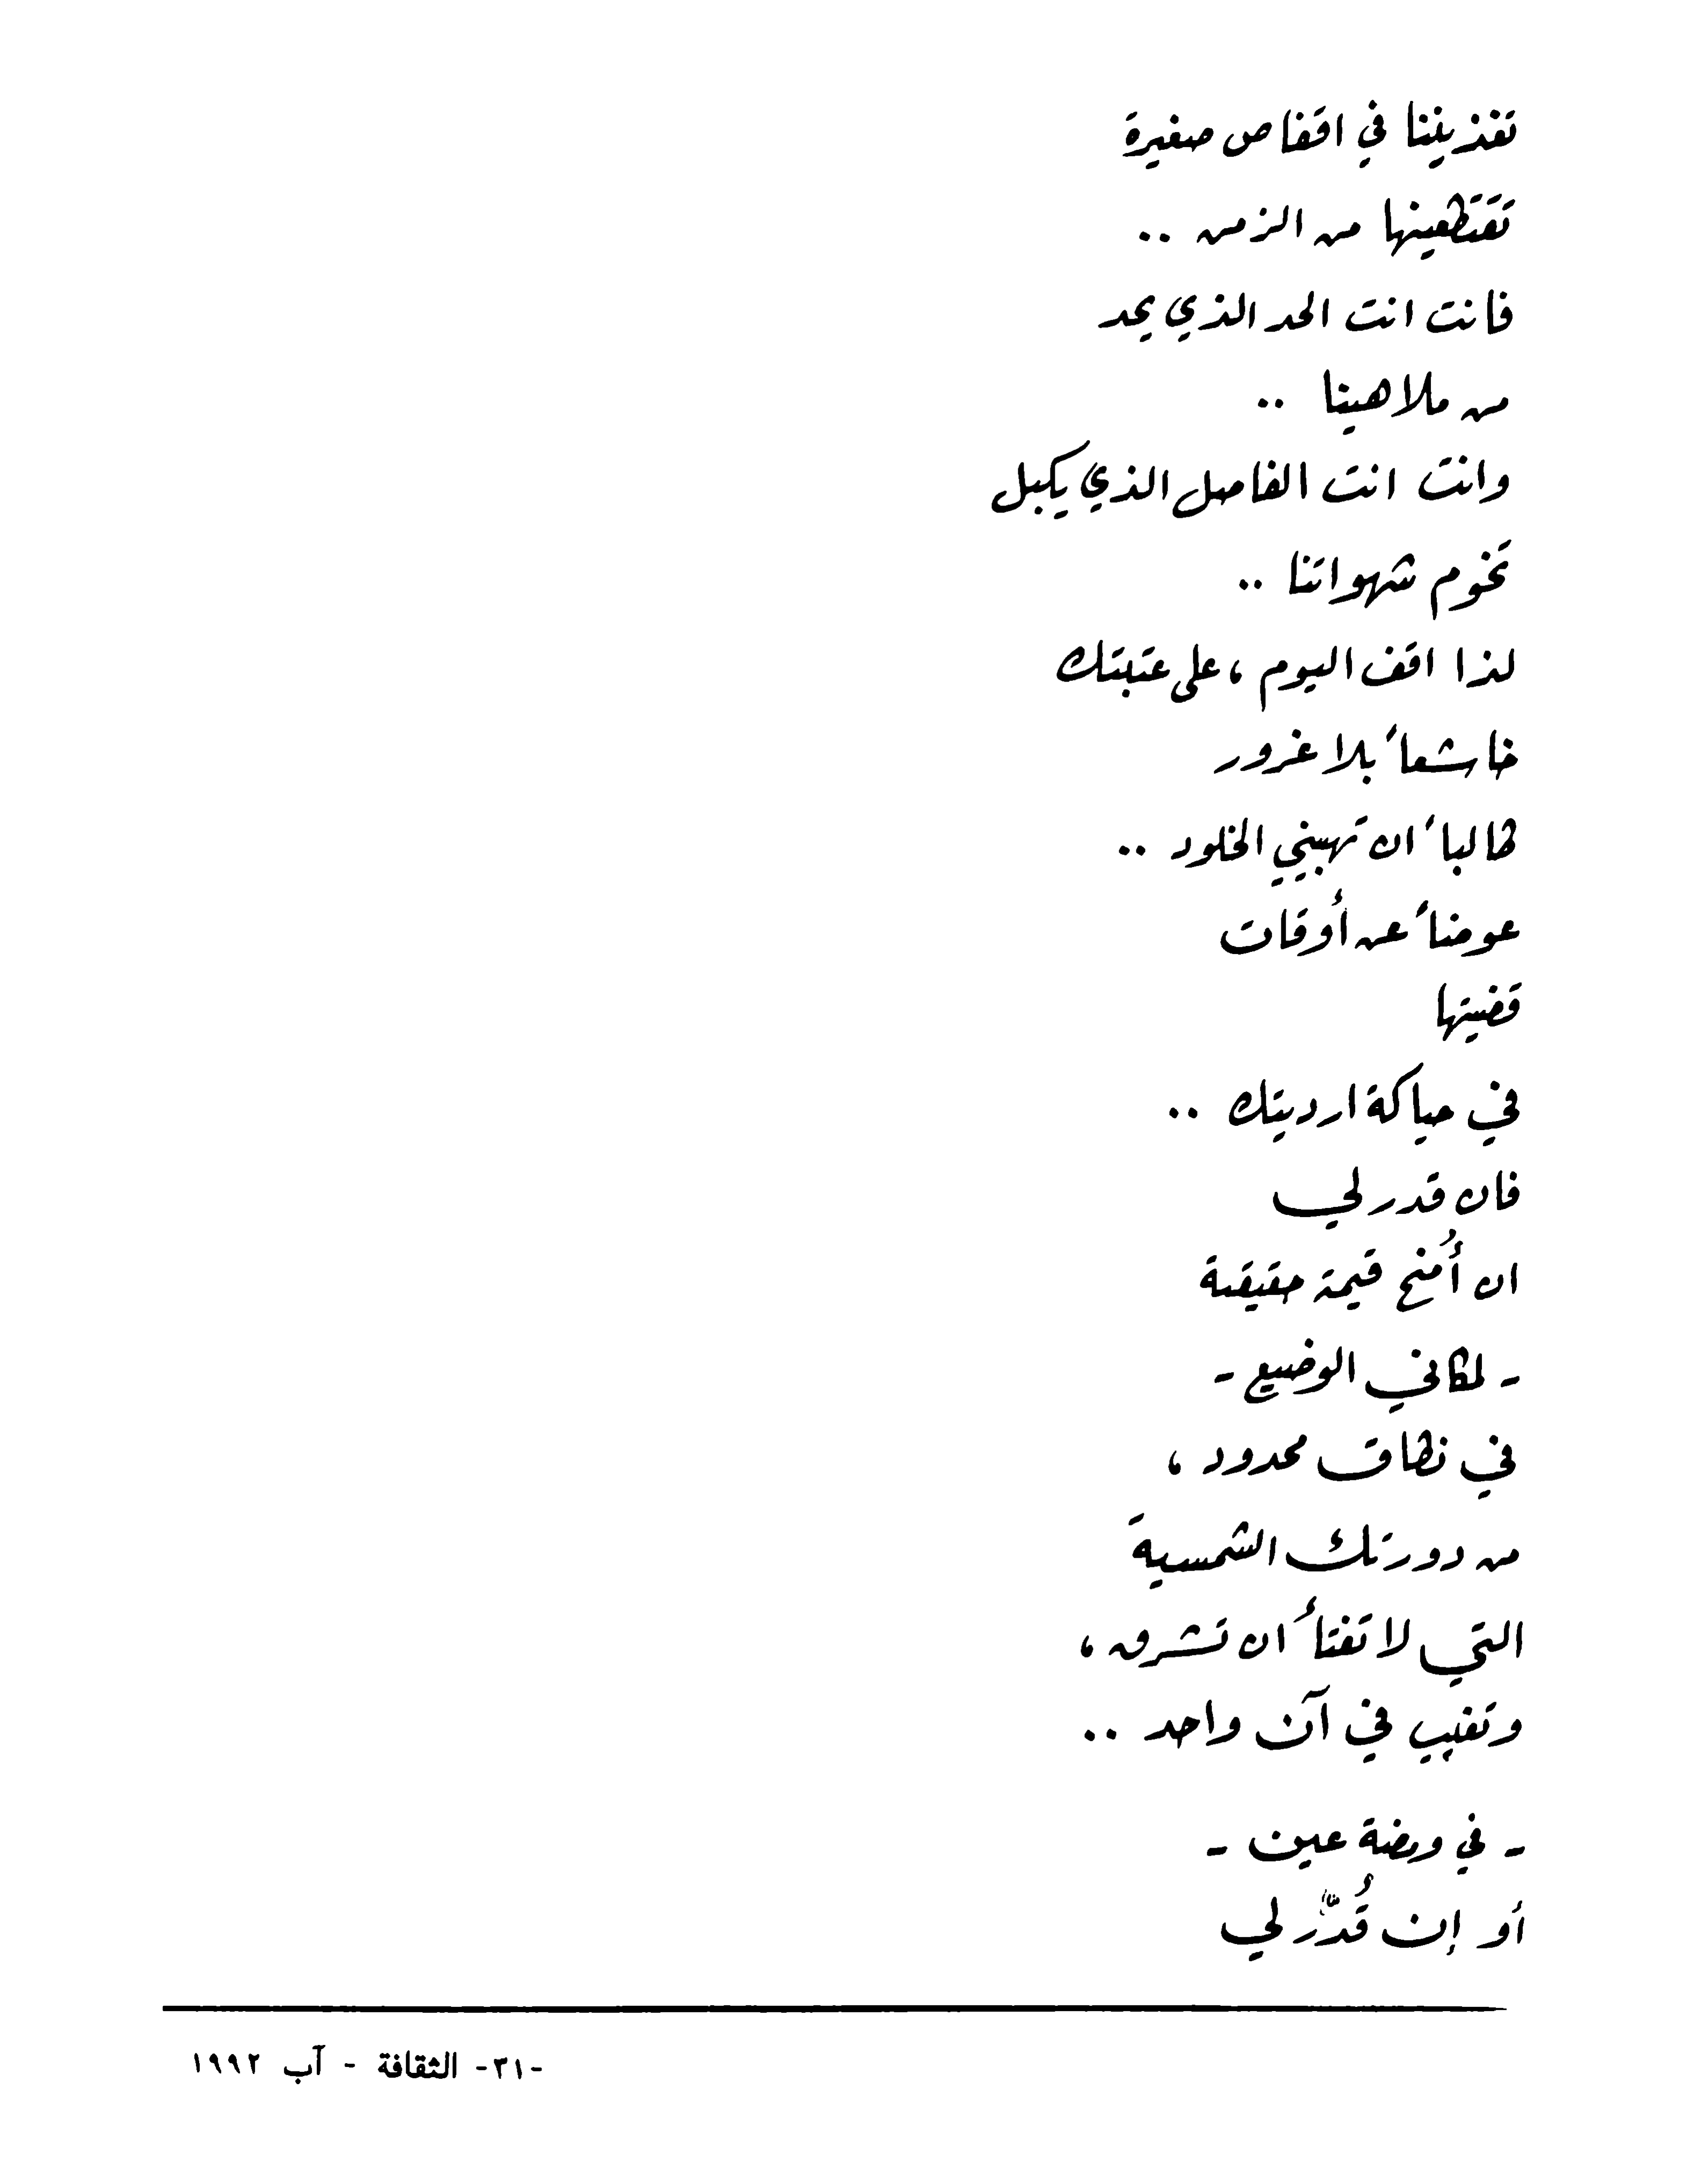 تغذيننا في اقفاص صغيرة
تقتطعينها من الزمن ..
فانت انت الحد الذي يحد
من ملاهينا ..
وانت انت الفاصل الذي يكبل
تخوم شهواتنا ..
لذا اقف اليوم ، على عتبتك
خاشعاً بلا غرور
طالباً ان تهبيني الخلود ..
عوضاً عن أوقات
قضيتها
في حياكة ارديتك ..
فان قدر لي
ان أُمنح قيمة حقيقية
- لمكاني الوضيع -
في نطاق محدود ،
من دورتك الشمسية
التي لا تفتأ ان تشرق ،
وتغيب في آن واحد ..
- في ومضة عين -
أو إن قُدّر لي
-٣١- الثقافة - آب ١٩٩٢